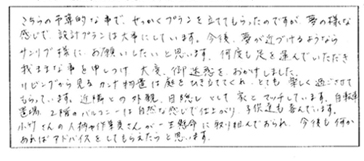 こちらの予算的な事で、せっかくプランを立ててもらったのですが、夢の様な
感じで、設計プランは大事にしています。今後、夢が近づけるようなら
サンリブ様に お願いしたいと思います。何度も足を運んでいただき
我ままな事を申しつけ 大変、御迷惑を おかけしました。
リビングから見るカンナ物置は庭をひきたててくれ、とても楽しく過ごさせて
もらっています。近隣への外観、目隠しとして家とマッチしています。自転車
置場、2階のバルコニーは自然な感じで仕上がり、子供達も喜んでいます。
小川さんの人柄や作業員さんが一生懸命に取り組んでおられ、今後も何か
あればアドバイスをしてもらえたらと思います。